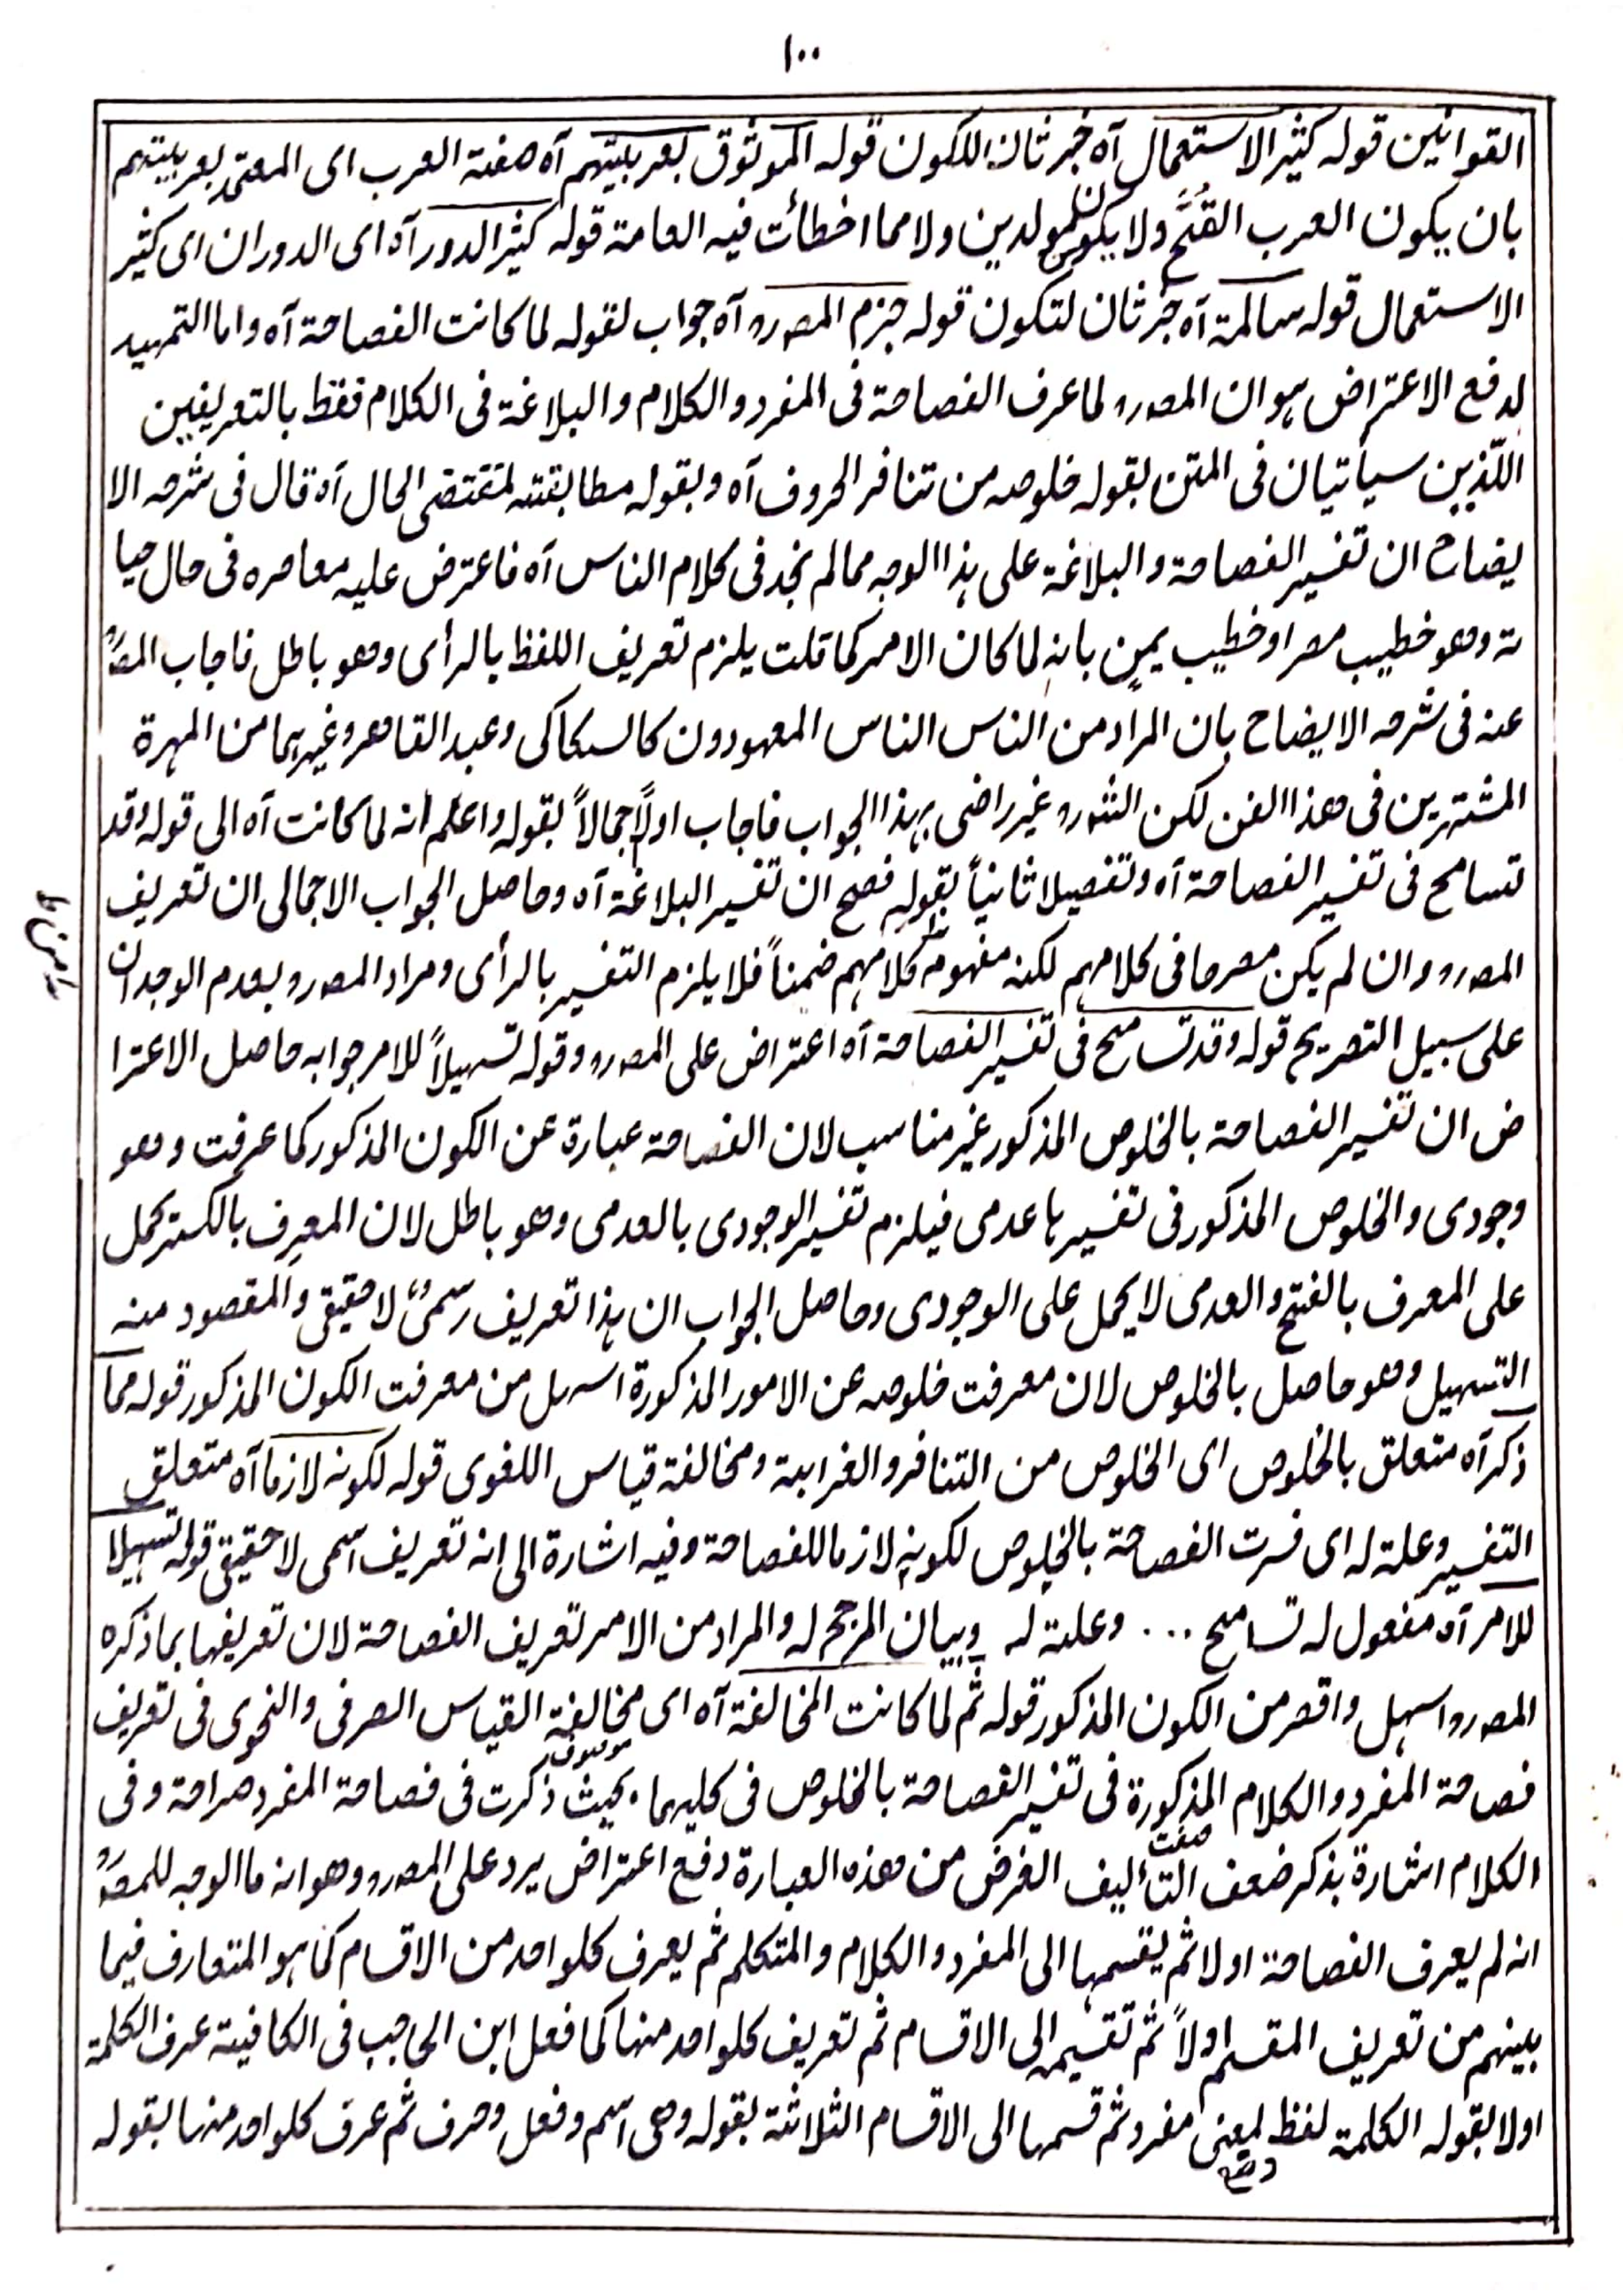 ١٠٠
القوانين قوله كثير الاستعمال آه خبر ثان للكون قوله الموثوق بعربيتهم آه صفة العرب اى المعتمد بعربيتهم
بان يكون العرب القُحّ ولا يكون للمولدين ولا مما اخطأت فيه العامة قوله كثير الدور آه اى الدوران اى كثير
الاستعمال قوله سالمة آه خبر ثان لتكون قوله جزم المصرو آه جواب لقوله لما كانت الفصاحة آه واما التمهيد
لدفع الاعتراض هو ان المصرو لما عرف الفصاحة فى المفرد والكلام والبلاغة فى الكلام فقط بالتعريفين
اللّذين سيأتيان فى المتن بقوله خلوصه من تنافر الحروف آه وبقوله مطابقته لمقتضى الحال آه قال فى شرحه الا
يضاح ان تفسير الفصاحة والبلاغة على هذا الوجه مما لم نجد فى كلام الناس آه فاعترض عليه معاصره فى حال حيا
ته وهو خطيب مصر او خطيب يمن بانه لما كان الامر كما قلت يلزم تعريف اللفظ بالرأى وهو باطل فاجاب المصَرو
عنه فى شرحه الايضاح بان المراد من الناس الناس المعهودون كالسكاكى وعبد القاهر وغيرهما من المهرة
المشتهرين فى هذا الفن لكن الشرو غير راضى بهذا الجواب فاجاب اولًا اجمالاً بقوله واعلم انه لما كانت آه الى قوله وقد
تسامح فى تفسير الفصاحة آه وتفصيلا ثانياً بقوله فصح ان تفسير البلاغة آه وحاصل الجواب الاجمالى ان تعريف
المصرو وان لم يكن مصرحا فى كلامهم لكنه مفهوم كلامهم ضمناً فلا يلزم التفسير بالرأى ومراد المصرو بعدم الوجدان
على سبيل التصريح قوله وقد تسامح فى تفسير الفصاحة آه اعتراض على المصرو وقوله تسهيلاً للامر جوابه حاصل الاعترا
ض ان تفسير الفصاحة بالخلوص المذكور غير مناسب لان الفصاحة عبارة عن الكون المذكور كما عرفت وهو
وجودى والخلوص المذكور فى تفسيرها عدمى فيلزم تفسير الوجودى بالعدمى وهو باطل لان المعرِف بالكسر يحمل
على المعرف بالفتح والعدمى لا يحمل على الوجودى وحاصل الجواب ان هذا تعريف رسمىٌ لا حقيقى والمقصود منه
التسهيل وهو حاصل بالخلوص لان معرفت خلوصه عن الامور المذكورة اسهل من معرفت الكون المذكور قوله مما
ذكر آه متعلق بالخلوص اى الخلوص من التنافر والغرابة ومخالفة قياس اللغوى قوله لكونه لازما آه متعلق
التفسير وعلة له اى فسرت الفصاحة بالخلوص لكونه لازما للفصاحة وفيه اشارة الى انه تعريف اسمى لا حقيقى قوله تسهيلا
للامر آه مفعول له تسامح ... وعلة له وبيان المرجح له والمراد من الامر تعريف الفصاحة لان تعريفها بما ذكره
المصرو اسهل واقصر من الكون المذكور قوله ثم لما كانت المخالفة آه اى مخالفة القياس الصرفى والنحوى فى تعريف
فصاحة المفرد والكلام المذكورة فى تفسير الفصاحة بالخلوص فى كليهما بحيث ذكرت فى فصاحة المفرد صراحة وفى
الكلام اشارة بذكر ضعف التأليف الغرض من هذه العبارة دفع اعتراض يرد على المصرو وهو انه ما الوجه للمصَرو
انه لم يعرف الفصاحة اولا ثم يقسمها الى المفرد والكلام والمتكلم ثم يعرف كلواحد من الاقسام كما هو المتعارف فيما
بينهم من تعريف المقسم اولاً ثم تقسيمه الى الاقسام ثم تعريف كلواحد منها كما فعل ابن الحاجب فى الكافية عرف الكلمة
اولا بقوله الكلمة لفظ وضع لمعنى مفرد ثم قسمها الى الاقسام الثلاثة بقوله وهى اسم وفعل وحرف ثم عرف كلواحد منها بقوله